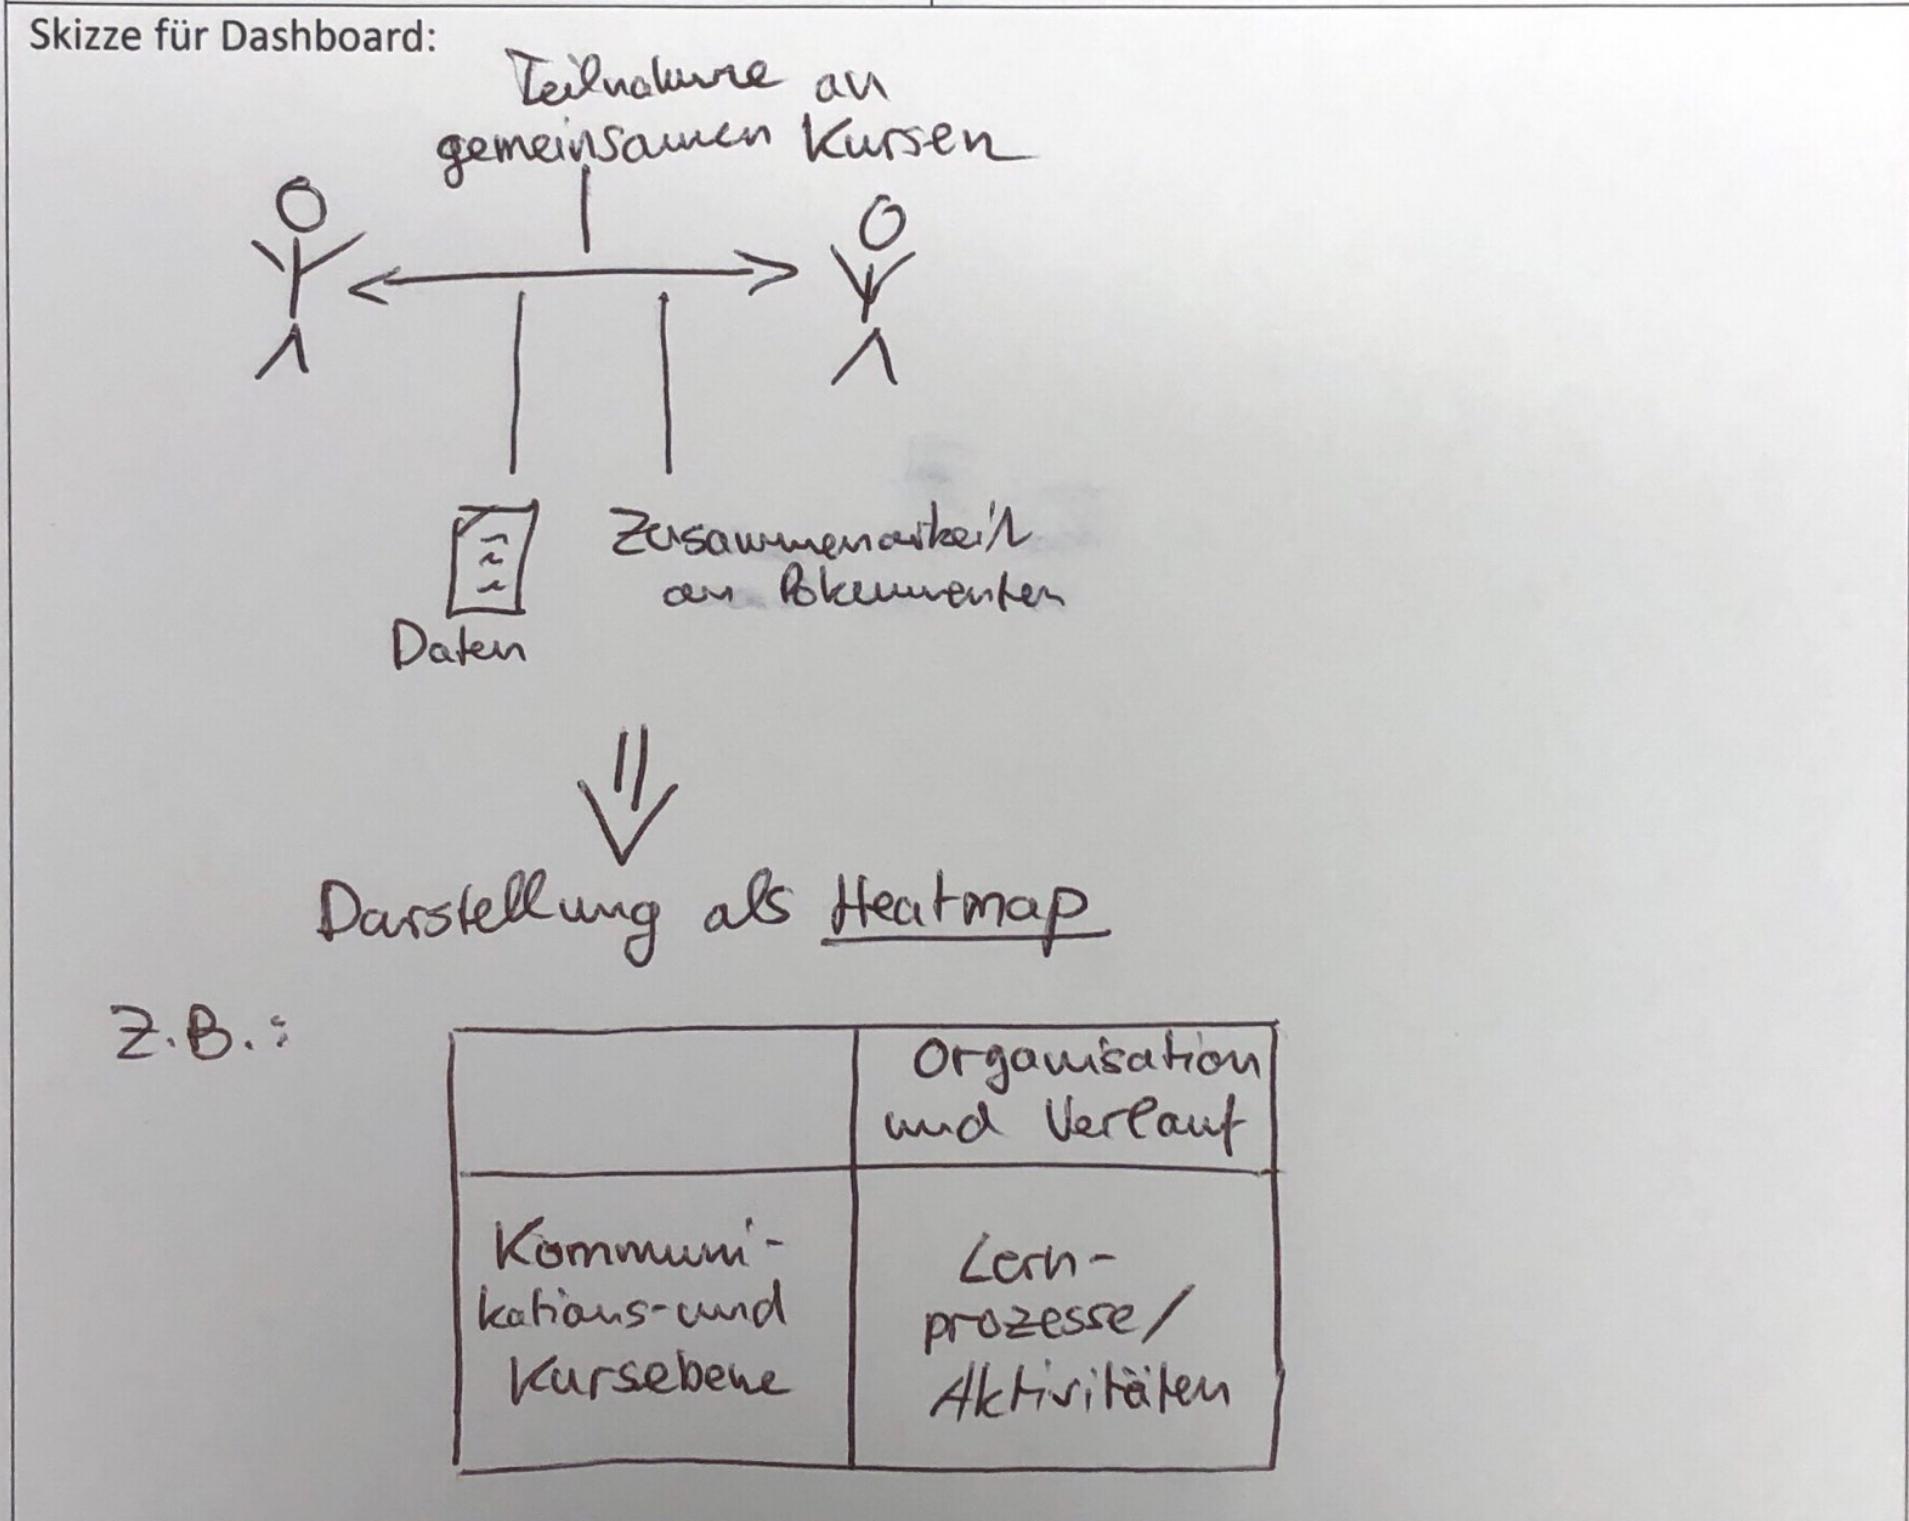 Skizze für Dashboard:
Teilnahme an
gemeinsamen Kursen
Zusammenarbeit
an Dokumenten
Daten
Darstellung als Heatmap
Z.B.:
Organisation
und Verlauf
Kommuni-
kations- und
Kursebene
Lern-
prozesse/
Aktivitäten